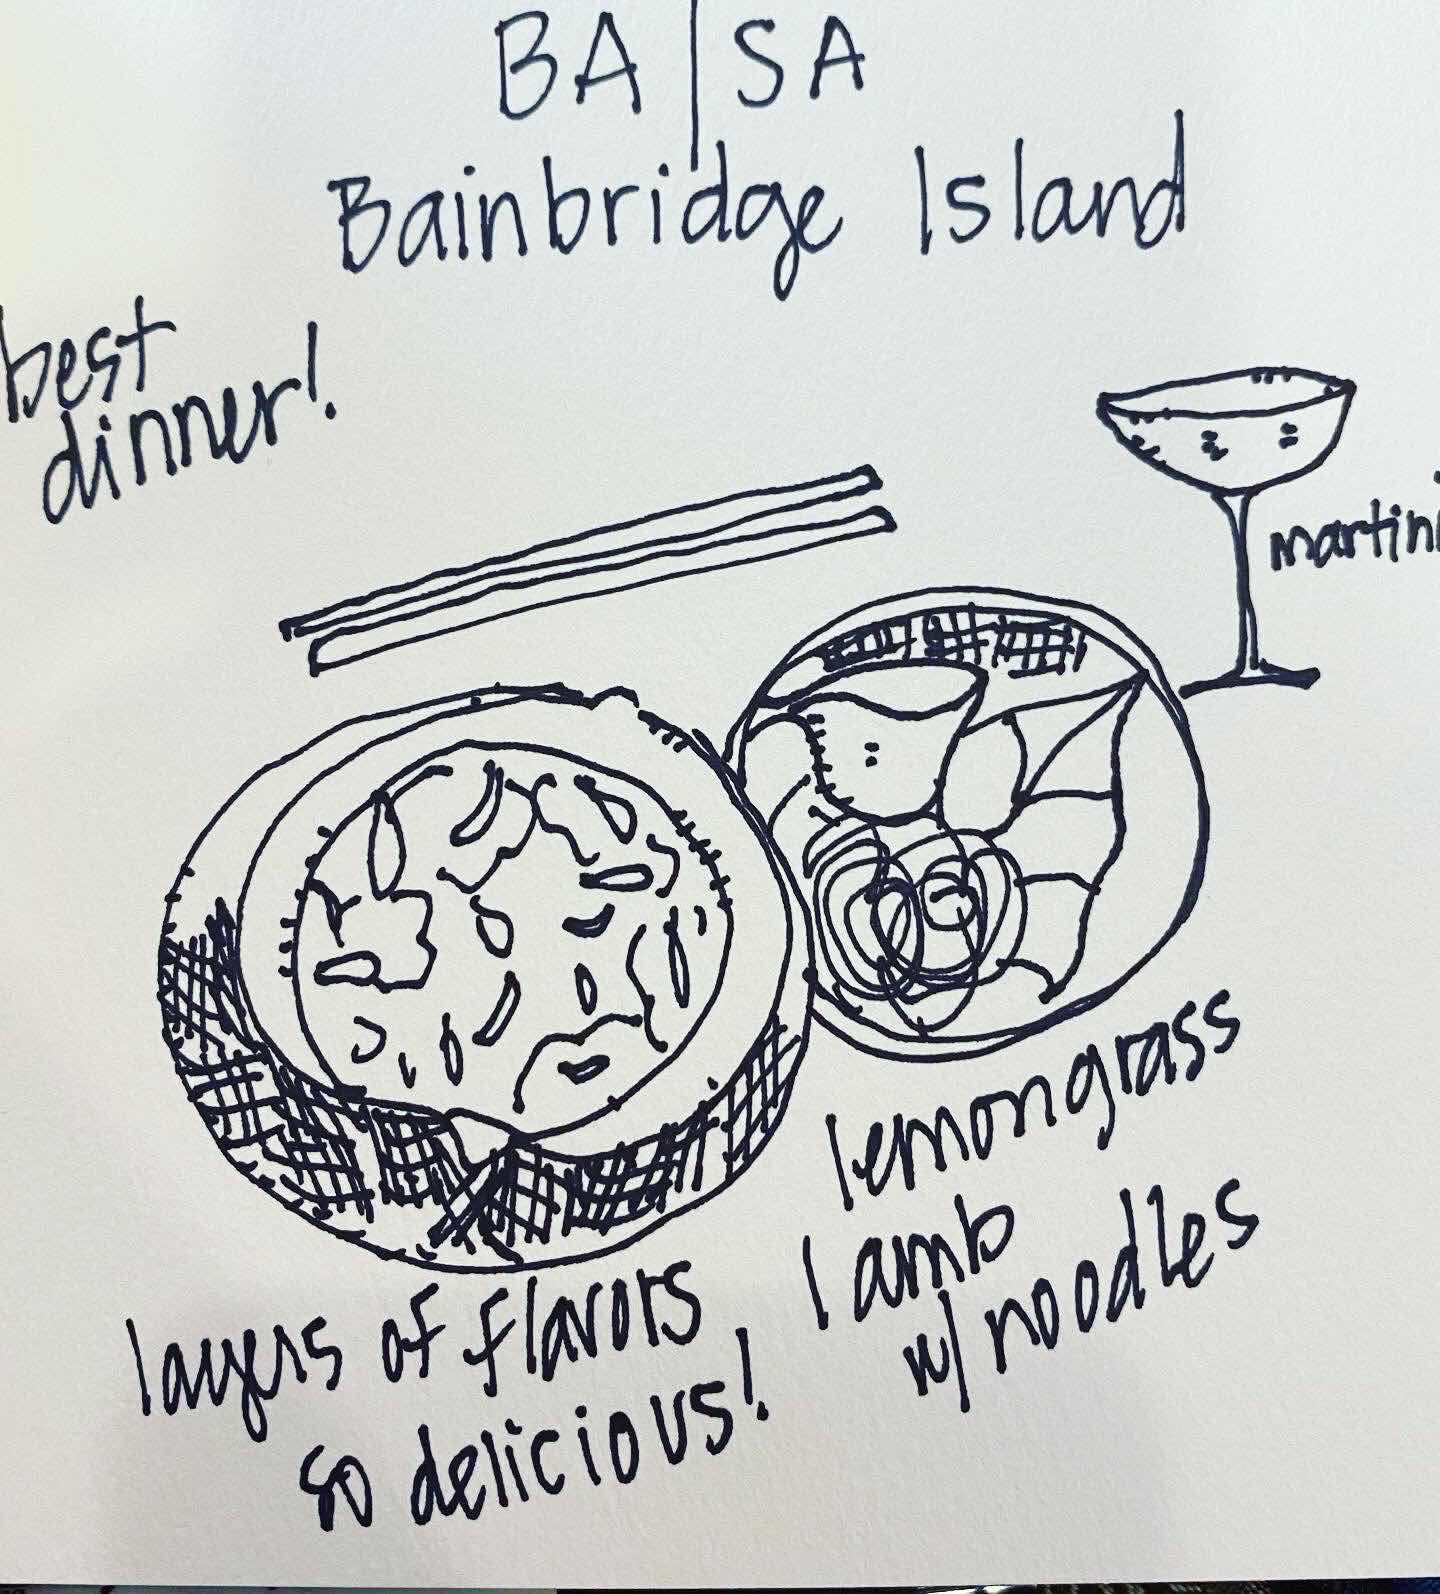 BA|SA
Bainbridge Island
best
dinner!
martini
lemongrass
lamb
w/ noodles
layers of flavors
so delicious!